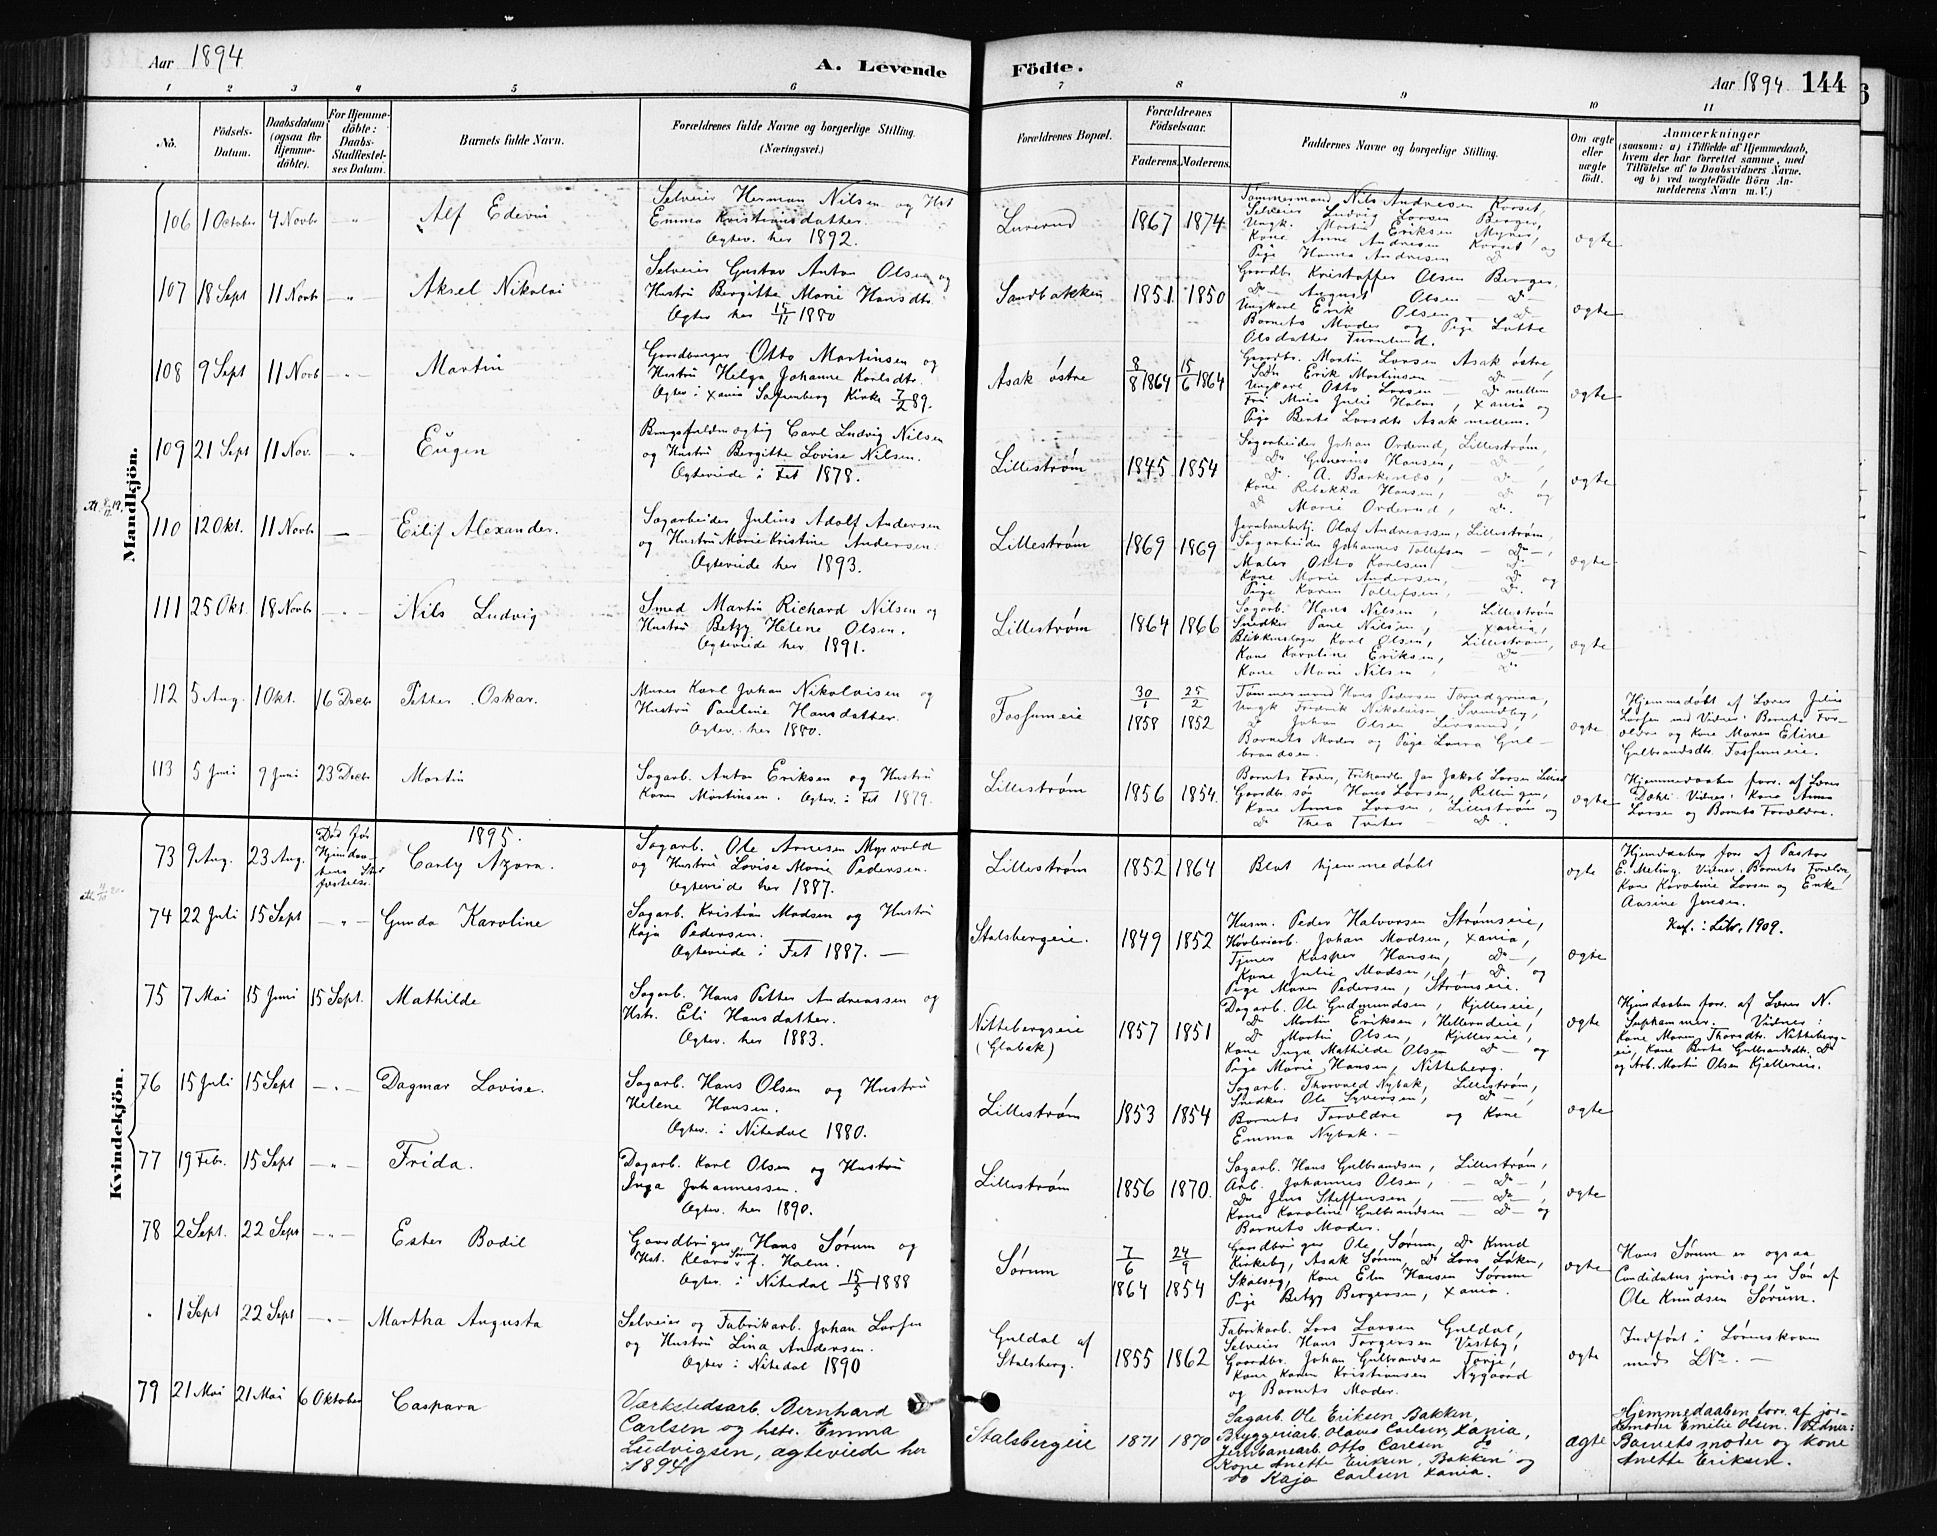 Aar 1894
A. Levende Födte.
Aar 1894 144
1 2 3 4 5 6 7 8 9 10 11
No.
Födsels-Datum.
Daabsdatum (ogsaa for Hjemme-döbte).
For Hjemme-döbte: Daabs-Stadfæstel-ses Datum.
Barnets fulde Navn.
Forældrenes fulde Navne og borgerlige Stilling. (Næringsvei.)
Forældrenes Bopæl.
Forældrenes Födselsaar.
Faderens. Moderens.
Faddernes Navne og borgerlige Stilling.
Om ægte eller uægte födt.
Anmærkninger
(saasom: a) i Tilfælde af Hjemmedaab,
hvem der har forrettet samme, med
Tilföielse af to Daabsvidners Navne,
og b) ved uægtefödte Börn An-
melderens Navn m. V.)
Mandkjön.
106 1 October 4 Novbr — " Alf Edevin
Selveier Herman Nilsen og Hst
Emma Kristiansdatter.
Ægtev. her 1892.
1867 1874
Tømmermand Nils Andresen Korset,
Selveier Ludvig Larsen Berger,
Ungk. Martin Eriksen Myrer,
Kone Anne Andresen Korset og
Pige Hanna Andresen D°
ægte
107 18 Sept 11 Novbr — " — Aksel Nikolai
Selveier Gustav Anton Olsen og
Hustru Bergitte Marie Hansdtr.
Ægtev her 15/11 1880
Sandbakken 1851. 1850
Gaardbr Kristoffer Olsen Berger,
D° — August Olsen D°
Ungkarl Erik Olsen D°
Barnets Moder og Pige Lotte
Olsdatter
ægte
108 9 Sept 11 Novb — " — Martin
Gaardbruger Otto Martinsen og
Hustru Helga Johanne Karlsdtr.
Ægtev. i Xania Kirke 7/2 89.
Asak østre 8/8 1864 15/6 1864
Gaardbr. Martin Larsen Asak østre,
Søn Erik Martinsen — D° —,
Ungkarl Otto Larsen — D° mellem
Frk Marie Julie Holm, Xania og
Pige Berte Larsdtr Asak mellem.
ægte
109 21 Sept 11 Nov. " Eugen
Brugsfuldmægtig Carl Ludvig Nilsen
og Hustru Bergitte Lovise Nilsen.
Ægteviede i Fet 1878.
Lillestrøm 1845 1854
Sagarbeider Johan Orderud, Lillestrøm,
D° Gunerius Hansen, D°,
D°. A. — D° —,
Kone Rebekka Hansen, — D° og
D° Marie Orderud, D°.
ægte
110 12 Okt. 11 Novbr — Eilif Alexander.
Sagarbeider Julius Adolf Andersen
og Hustru Marie Kristine Andersen.
Ægteviede her 1893.
Lillestrøm 1869 1869
Jernbanebetj. Olaf Andreassen, Lillestrøm,
Sagarbeider Johannes Tollefsen — D° —,
Maler Otto Karlsen — D°
Kone Marie Andersen, — D° og
Pige Karen Tollefsen, — D°.
ægte
111 25 Okt. 18 Novbr — " — Nils Ludvig
Smed Martin Richard Nilsen og
Hustru Betzy Helene Olsen.
Ægteviede her 1891.
Lillestrøm 1864 1866
Sagarb. Hans Nilsen, Lillestrøm
Snedker Nilsen, — Xania,
Blikkenslager Karl Olsen, Lillestrøm,
Kone Karoline Eriksen, — D°
Kone Marie Nilsen, — D°
ægte
112 5 Aug. 1 Okt. 16 Decbr Petter Oskar.
Murer Karl Johan Nikolaisen og
Hustru Pauline Hansdatter.
Ægtev. her 1880.
Fosfumeie 30/1 1858 25/2 1852
Tømmermand Hans Pedersen
Ungk Fredrik Nikolaisen
D° Johan Olsen
Barnets Moder og Pige Laura Gul-
brandsen.
ægte
Hjemmedøbt af Lærer Julius
Larsen med Vidner: Barnets For-
ældre og Kone Maren Eline
Gulbrandsdtr. Fosfumeie.
113 5 Juni 9 Juni 23 Decbr Martin
Sagarb. Anton Eriksen og Hustru
Karen Martinsen. Ægtev. i Fet 1879.
Lillestrøm 1856 1854.
Barnets Fader, Jan Jakob Larsen
Gaardbr. søn Hans Larsen,
Kone Anna Larsen, Lillestrøm og
D° Thea — D°.
ægte
Hjemmedaaben forr. af Lærer
Dahl. Vidner: Kone Anna
Larsen og Barnets Forældre.
Kvindekjön.
1895.
73 9 Aug. 23 Aug. Død før
Hjemdaa-
bens Stad-
fæstelse. Carly Azora.
Sagarb. Ole Arnesen Myrvold
og Hustru Lovise Marie Pedersen.
Ægteviede her 1887.
Lillestrøm 1852 1864 Blot hjemmedøbt ægte
Hjemdaaben forr. af Pastor
E. Meling. Vidner: Barnets Forældre,
Kone Karoline Larsen og Enke
Aasine Jensen.
74 22 Juli 15 Sept — " — Gunda Karoline
Sagarb. Kristian Madsen og Hustru
Kaja Pedersen.
Ægteviede i Fet 1887. —
Stalsbergeie. 1849 1852
Husm. Peder Halvorsen Strømseie,
Johan Madsen, Xania,
Tjener Kasper Hansen, D° —,
Kone Julie Madsen, D°. og
Pige Maren Pedersen, Strømseie.
ægte
1909.
75 7 Mai 15 Juni 15 Sept. Mathilde
Sagarb. Hans Petter Andreassen og
Hstr. Eli Hansdatter.
Ægtev. her 1883.
Nittebergseie
(Glabak) 1857 1851
Dagarb. Ole Gudmundsen, Kjellereie,
D° Martin Eriksen, Hellerudeie,
D° Martin Olsen, Kjellereie,
Kone Inga Mathilde Olsen D° — og
Pige Marie Hansen, Nitteberg.
ægte
Hjemdaaben forr. af Lærer N.
Vidner:
Kone Maren Thorsdtr. Nitteberg-
eie, Kone Berte Gulbrandsdtr. D°
og Arb. Martin Olsen Kjellereie.
76 15 Juli 15 Sept — " — Dagmar Lovise.
Sagarb. Hans Olsen og Hustru
Helene Hansen.
Ægtev. i Nitedal 1880.
Lillestrøm 1853 1854
Sagarb. Thorvald Nybak, Lillestrøm,
Snedker Ole Syversen, D° —,
Barnets Forældre og Kone
Emma Nybak. —
ægte
77 19 Febr. 15 Sept — " — Frida.
Dagarb. Karl Olsen og Hustru
Inga Johannessen.
Ægtev. her 1890.
Lillestrøm 1856 1870.
Sagarb. Hans Gulbrandsen, Lillestrøm,
Arb. Johannes Olsen, — D° —,
D° Jens Steffensen, — D° —,
Kone Karoline Gulbrandsen — D° — og
Barnets Moder.
ægte
78 2 Sept. 22 Sept — " — Ester Bodil
Gaardbruger Hans Sørum og
Hst. Klara Sørum f. Holm.
Ægtev. i Nitedal 15/5 1888
Sørum 7/6 1864 24/9 1854
Gaardbruger Ole Sørum, D° Knud
Kirkeby, Asak Sørum, D° Lars Løken,
Skatseg, Kone Elen Hansen Sørum
Pige Betzy Bergersen, Xania.
ægte
Hans Sørum er ogsaa
Candidatus juris og er Søn af
Ole Knudsen Sørum.
" 1 Sept 22 Sept — " — Martha Augusta
Selveier og Fabrikarb. Johan Larsen
og Hustru Lina Andersen.
Ægtev i Nitedal 1890
Guldal af
Stalsberg. 1855 1862
Fabrikarb. Lars Larsen Guldal,
Selveier Hans Torgersen Vestby,
Gaardbr. Johan Gulbrandsen Torje,
Kone Karen Kristiansen Nygaard
og Barnets Moder.
ægte
Indført i Lørenskoven
med L№. —
79 21 Mai 21 Mai 6 Oktober Caspara
Værkstedsarb. Bernhard
Carlsen og hstr. Emma
Ludvigsen, ægteviede her
1894
Stalsbergeie 1871 1870
Sagarb. Ole Eriksen Bakken,
Bryggeriarb. Olaves Carlsen, Xania,
Jernbanearb. Otto Carlsen do
Kone Anette Eriksen, Bakken og
do Kaja Carlsen Xania.
ægte
Hjemmedaaben forr. af jor-
demoder Emilie Olsen. Vidner:
Barnets moder og kone
Anette Eriksen.